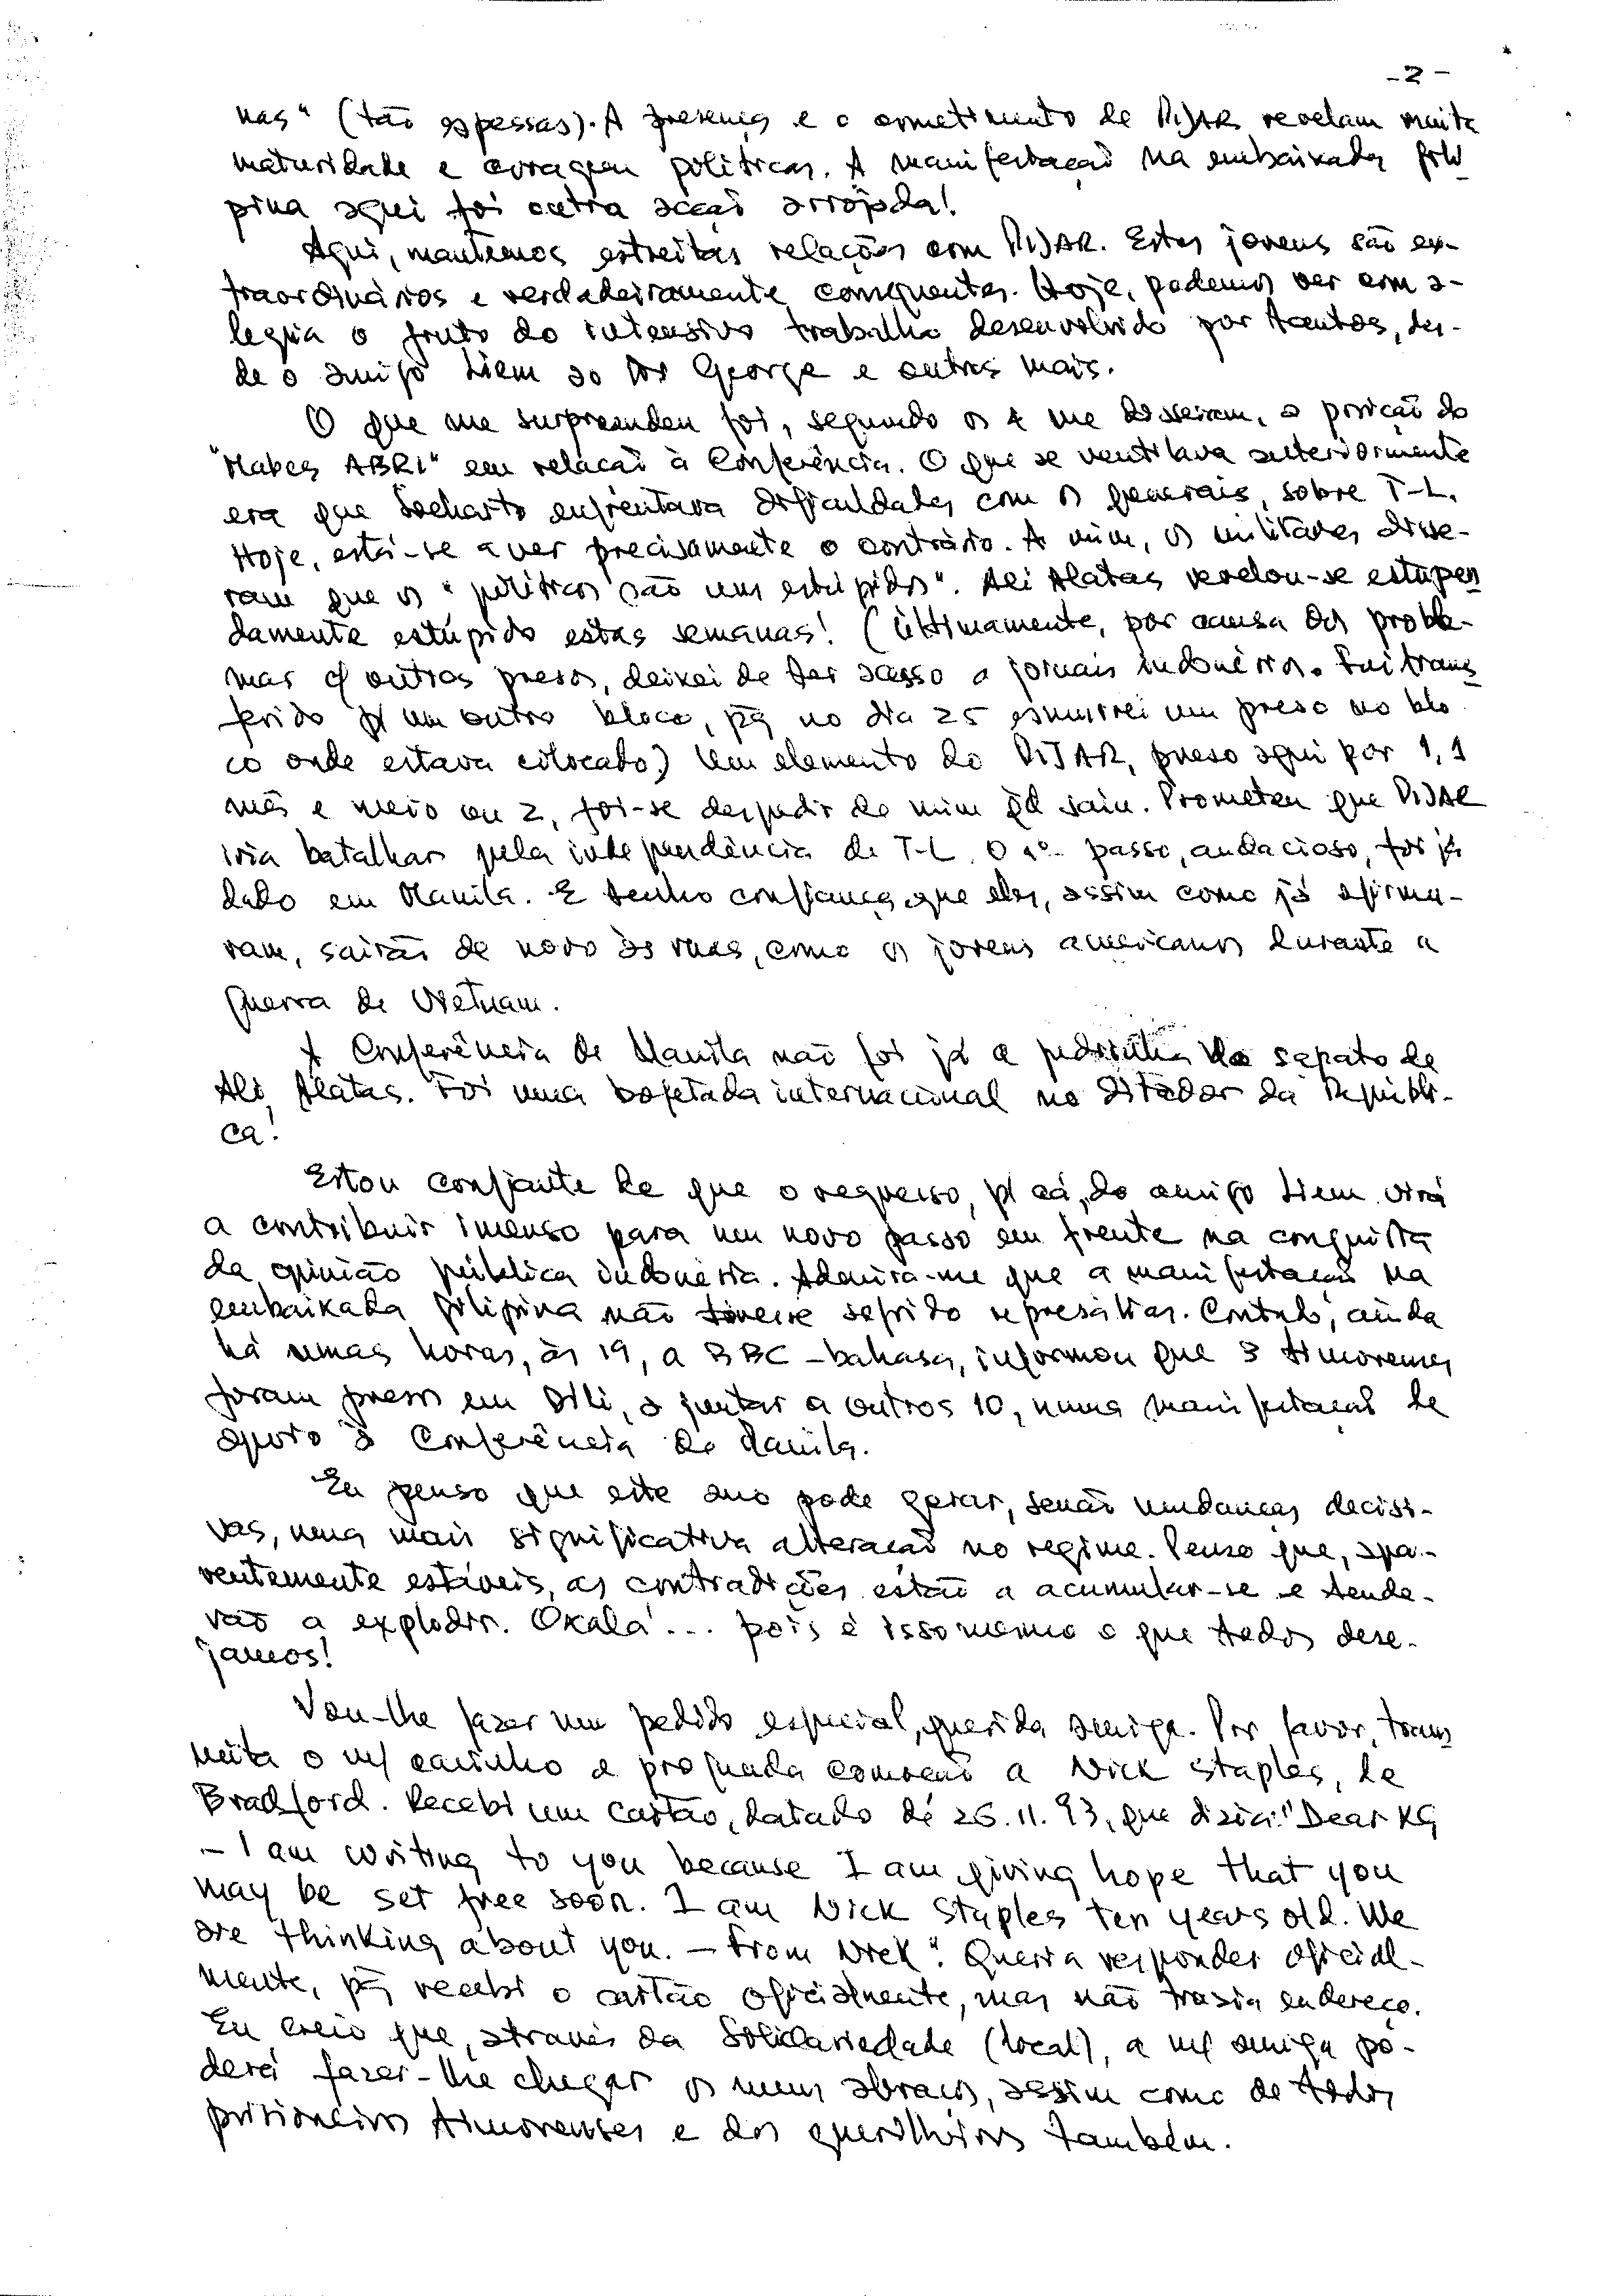 - 2 -
nas" (tão espessas). A presença e o cometimento de PIJAR revelam muita
maturidade e coragem políticas. A manifestação na embaixada fili
pina aqui foi outra acção arrojada!
Aqui, mantemos estreitas relações com PIJAR. Estes jovens são ex-
traordinários e verdadeiramente consequentes. Hoje, podemos ver com a-
legria o fruto do intensivo trabalho desenvolvido por tantos, des-
de o amigo Liem ao Dr George e outros mais.
O que me surpreendeu foi, segundo os 4 me disseram, a posição do
"Mabes ABRI" em relação à Conferência. O que se ventilava anteriormente
era que Soeharto enfrentava dificuldades com os generais, sobre T-L.
Hoje, está-se a ver precisamente o contrário. A mim, os militares disse-
ram que os "políticos são uns estúpidos". Ali Alatas revelou-se estupen
damente estúpido estas semanas! (Últimamente, por causa dos proble-
mas c/ outros presos, deixei de ter acesso a jornais indonésios. Fui trans
ferido p/ um outro bloco, pq no dia 25 esmurrei um preso no blo
co onde estava colocado) Um elemento do PIJAR, preso aqui por 1, 1
mês e meio ou 2, foi-se despedir de mim qd saiu. Prometeu que PIJAR
iria batalhar pela independência de T-L. O 1º passo, audacioso, foi já
dado em Manila. E tenho confiança que eles, assim como já afirma-
ram, sairão de novo às ruas, como os jovens americanos durante a
guerra de Vietnam.
A Conferência de Manila não foi já a pedrinha no sapato de
Ali Alatas. Foi uma bofetada internacional no ditador da Repúbli-
ca!
Estou confiante de que o regresso, p/ cá, do amigo Liem virá
a contribuir imenso para um novo passo em frente na conquista
da opinião pública indonésia. Admira-me que a manifestação na
embaixada filipina não tivesse sofrido represálias. Contudo, ainda
há umas horas, às 19, a BBC-bahasa, informou que 3 timorenses
foram presos em Díli, a juntar a outros 10, numa manifestação de
apoio à Conferência de Manila.
Eu penso que este ano pode gerar, senão mudanças decisi-
vas, uma mais significativa alteração no regime. Penso que, apa-
rentemente estáveis, as contradições estão a acumular-se e tende-
rão a explodir. Oxalá!... pois é isso mesmo o que todos dese-
jamos!
Vou-lhe fazer um pedido especial, querida amiga. Por favor, trans
mita o m/ carinho e profunda comoção a Nick Staples, de
Bradford. Recebi um cartão, datado de 26.11.93, que dizia: "Dear XG
- I am writing to you because I am giving hope that you
may be set free soon. I am Nick Staples ten years old. We
are thinking about you. - From Nick". Queria responder oficial-
mente, pq recebi o cartão oficialmente, mas não trazia endereço.
Eu creio que, através da Solidariedade (local), a m/ amiga po-
derá fazer-lhe chegar os meus abraços, assim como de todos
prisioneiros timorenses e dos guerrilheiros também.